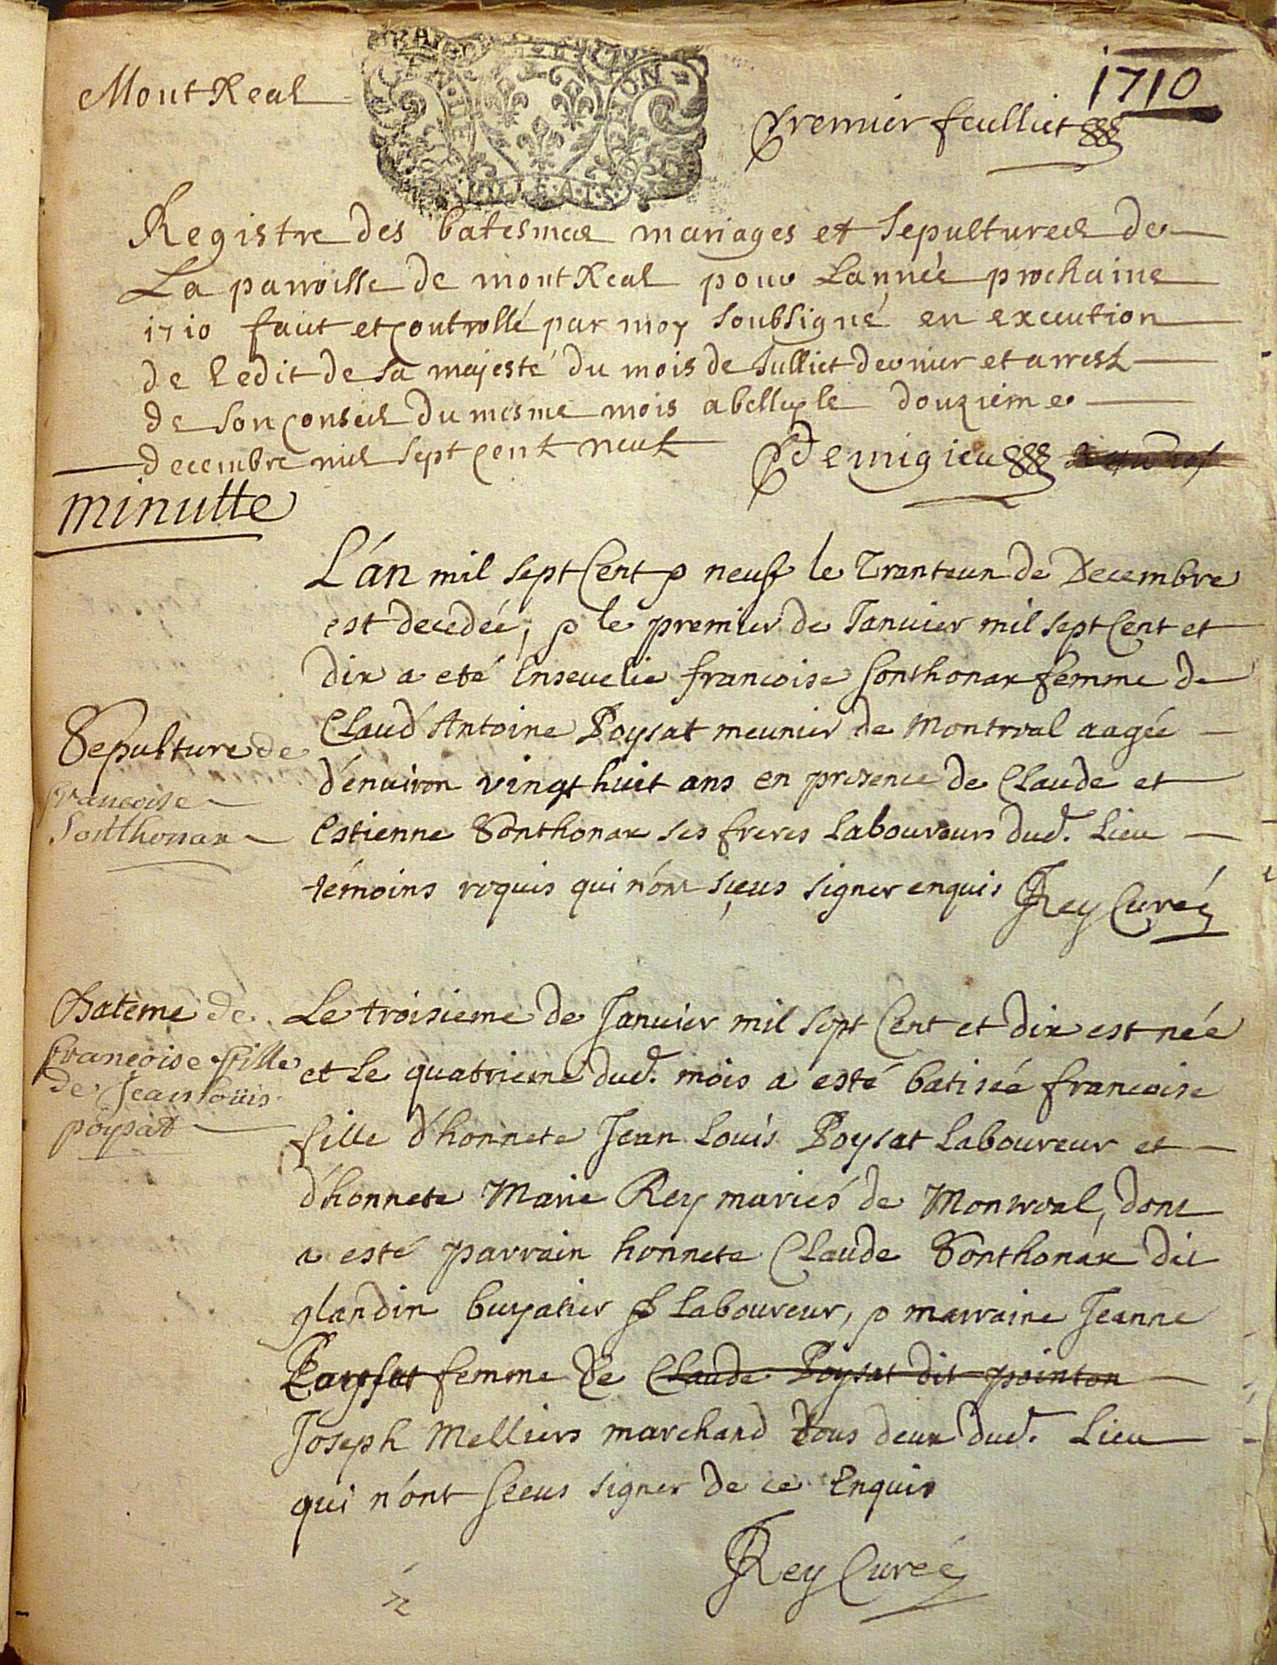 MontReal
1710
Premier feulliet
Registre des batesmes mariages et sepultures de
La parroisse de montReal pour Lannée prochaine
1710 fait et controllé par moy soubsigné en execution
de Ledit de sa majesté du mois de Julliet dernier et arrest
de son conseil du mesme mois a belley le douzieme
decembre mil sept cent neuf
Demigieu
minutte
L'án mil sept Cent neuf le Tranteun de Decembre
est decedée, le premier de Janvier mil sept Cent et
dix a eté Ensevelie francoise sonthonax femme de
Claud Antoine Poysat meunier de Montreal aagée
d'environ vingt huit ans en presence de Claude et
Estienne Sonthonax ses freres Laboureurs dud. Lieu
témoins requis qui n'ont sçeus signer enquis Rey Curé
Sepulture de
francoise
Sonthonax
Bateme de
francoise fille
de Jean Loüis
poysat
Le troisieme de Janvier mil sept Cent et dix est née
et Le quatrieme dud. mois a esté batisée francoise
fille d'honnete Jean Loüis Poysat Laboureur et
d'honnete Marie Rey mariés de Montreal, dont
a esté parrain honnete Claude Sonthonax dit
glandin Laboureur, marraine Jeanne
femme de Claude Poysat dit pointon
Joseph Melliers marchand tous deux dud. Lieu
qui n'ont sceus signer de ce Enquis
Rey Curé